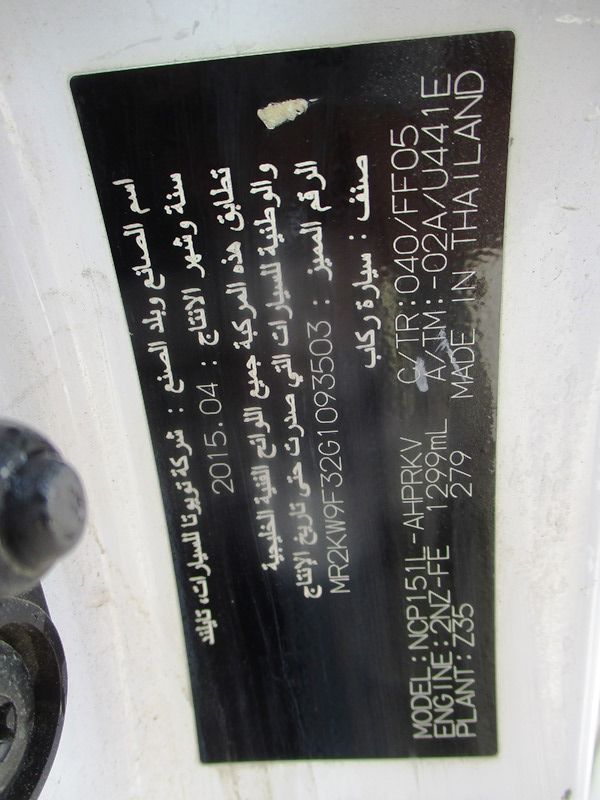 اسم الصانع وبلد الصنع : شركة تويوتا للسيارات، تايلاند
سنة وشهر الانتاج : 2015.04
تطابق هذه المركبة جميع اللوائح الفنية الخليجية
والوطنية للسيارات التي صدرت حتى تاريخ الإنتاج
الرقم المميز : MR2KW9F32G1093503
صنف : سيارة ركاب
MODEL:NCP151L-AHPRKV C/TR:040/FF05
ENGINE:2NZ-FE 1299mL A/TM:-02A/U441E
PLANT:Z35 279 MADE IN THAILAND